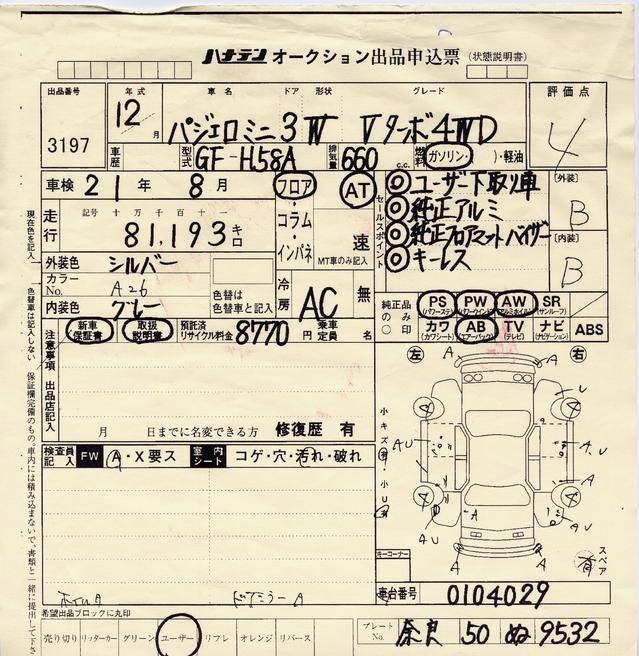 ハナテン オークション出品申込票 (状態説明書)
出品番号 年式 車名 ドア 形状 グレード 評価点
3197 12月 パジェロミニ 3 W Vターボ4WD 4
車歴 型式 GF-H58A 排気量 660 c.c. 燃料 ガソリン・( )・軽油
車検 21年 8月 フロア AT ユーザー下取り車 [外装]
走行 記号 十 万 千 百 十 一 ・コラム・インパネ 速 セールスポイント 純正アルミ B
81,193キロ MT車のみ記入 純正フロアマットバイザー [内装]
外装色 シルバー キーレス B
カラーNo. A26 色替車は色替車と記入 冷房 AC 無
内装色 グレー 純正品のみ○印 PS (パワーステ) PW (パワーウインド) AW (アルミホイル) SR (サンルーフ)
新車保証書 取扱説明書 預託済リサイクル料金 8770円 乗車定員 名 カワ (カワシート) AB (エアーバック) TV (テレビ) ナビ (ナビゲーション) ABS
注意事項 出品店記入
左 右
月 日までに名変できる方 修復歴 有
検査員記入 FW A・X要ス 室内シート コゲ・穴・汚れ・破れ
小キズ有・小U有
A A U A U A U A A A U A U A A
キーコーナー
有 スペア
ドアミラーA
車台番号 0104029
希望出品ブロックに丸印
売り切り リッターカー グリーン ユーザー リフレ オレンジ リバース プレートNo. 奈良 50 ぬ 9532
現在色を記入 色替車は記入しない 保証欄完備のもの。車内には積み込まないで、書類と一緒に提出して下さ